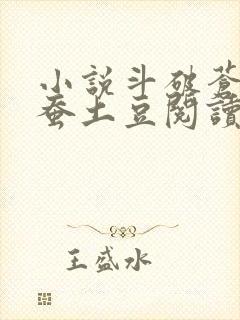 小說斗破蒼
蚕土豆閱讀
王盛水